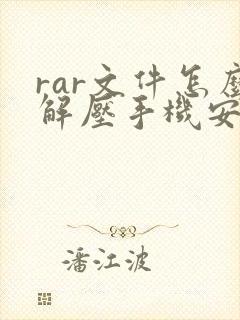 rar文件怎麼
解壓手機安
潘江波